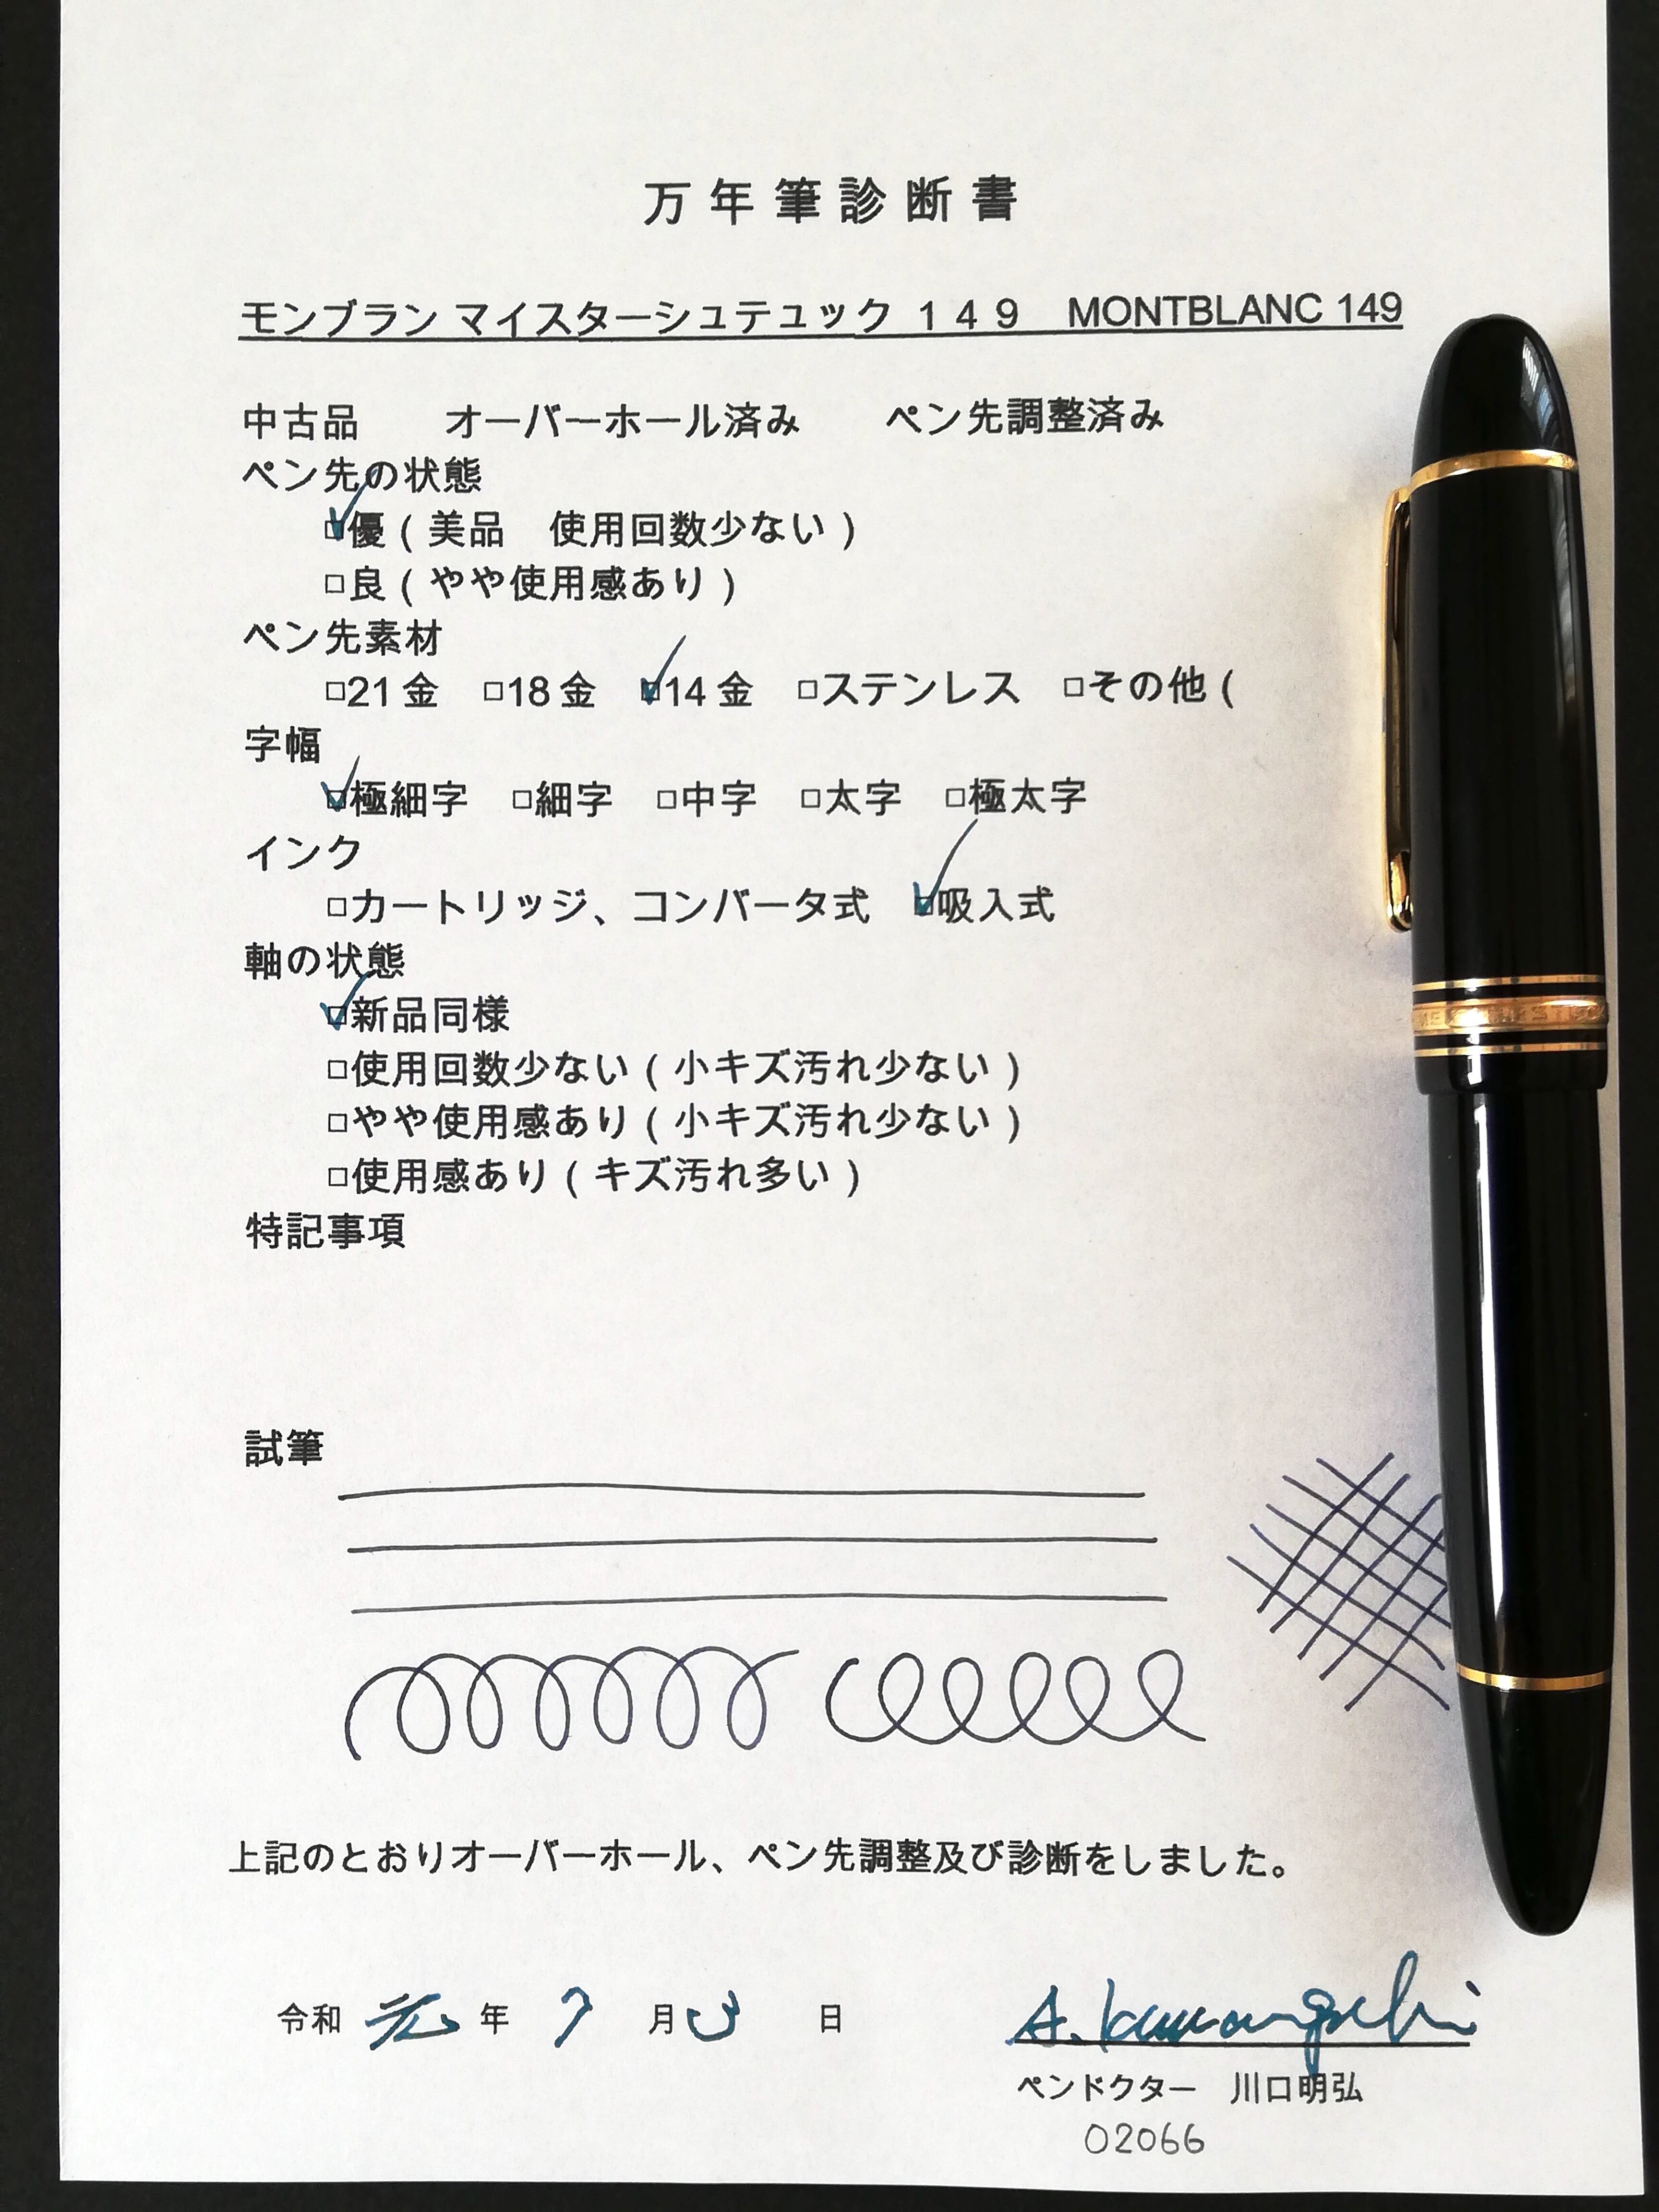 万年筆診断書
モンブラン マイスターシュテュック １４９　MONTBLANC 149
中古品　　オーバーホール済み　　ペン先調整済み
ペン先の状態
☑優（美品　使用回数少ない）
□良（やや使用感あり）
ペン先素材
□21金　□18金　☑14金　□ステンレス　□その他（
字幅
☑極細字　□細字　□中字　□太字　□極太字
インク
□カートリッジ、コンバータ式　☑吸入式
軸の状態
☑新品同様
□使用回数少ない（小キズ汚れ少ない）
□やや使用感あり（小キズ汚れ少ない）
□使用感あり（キズ汚れ多い）
特記事項
試筆
上記のとおりオーバーホール、ペン先調整及び診断をしました。
令和 元 年 7 月 日
A. Kawaguchi
ペンドクター　川口明弘
02066